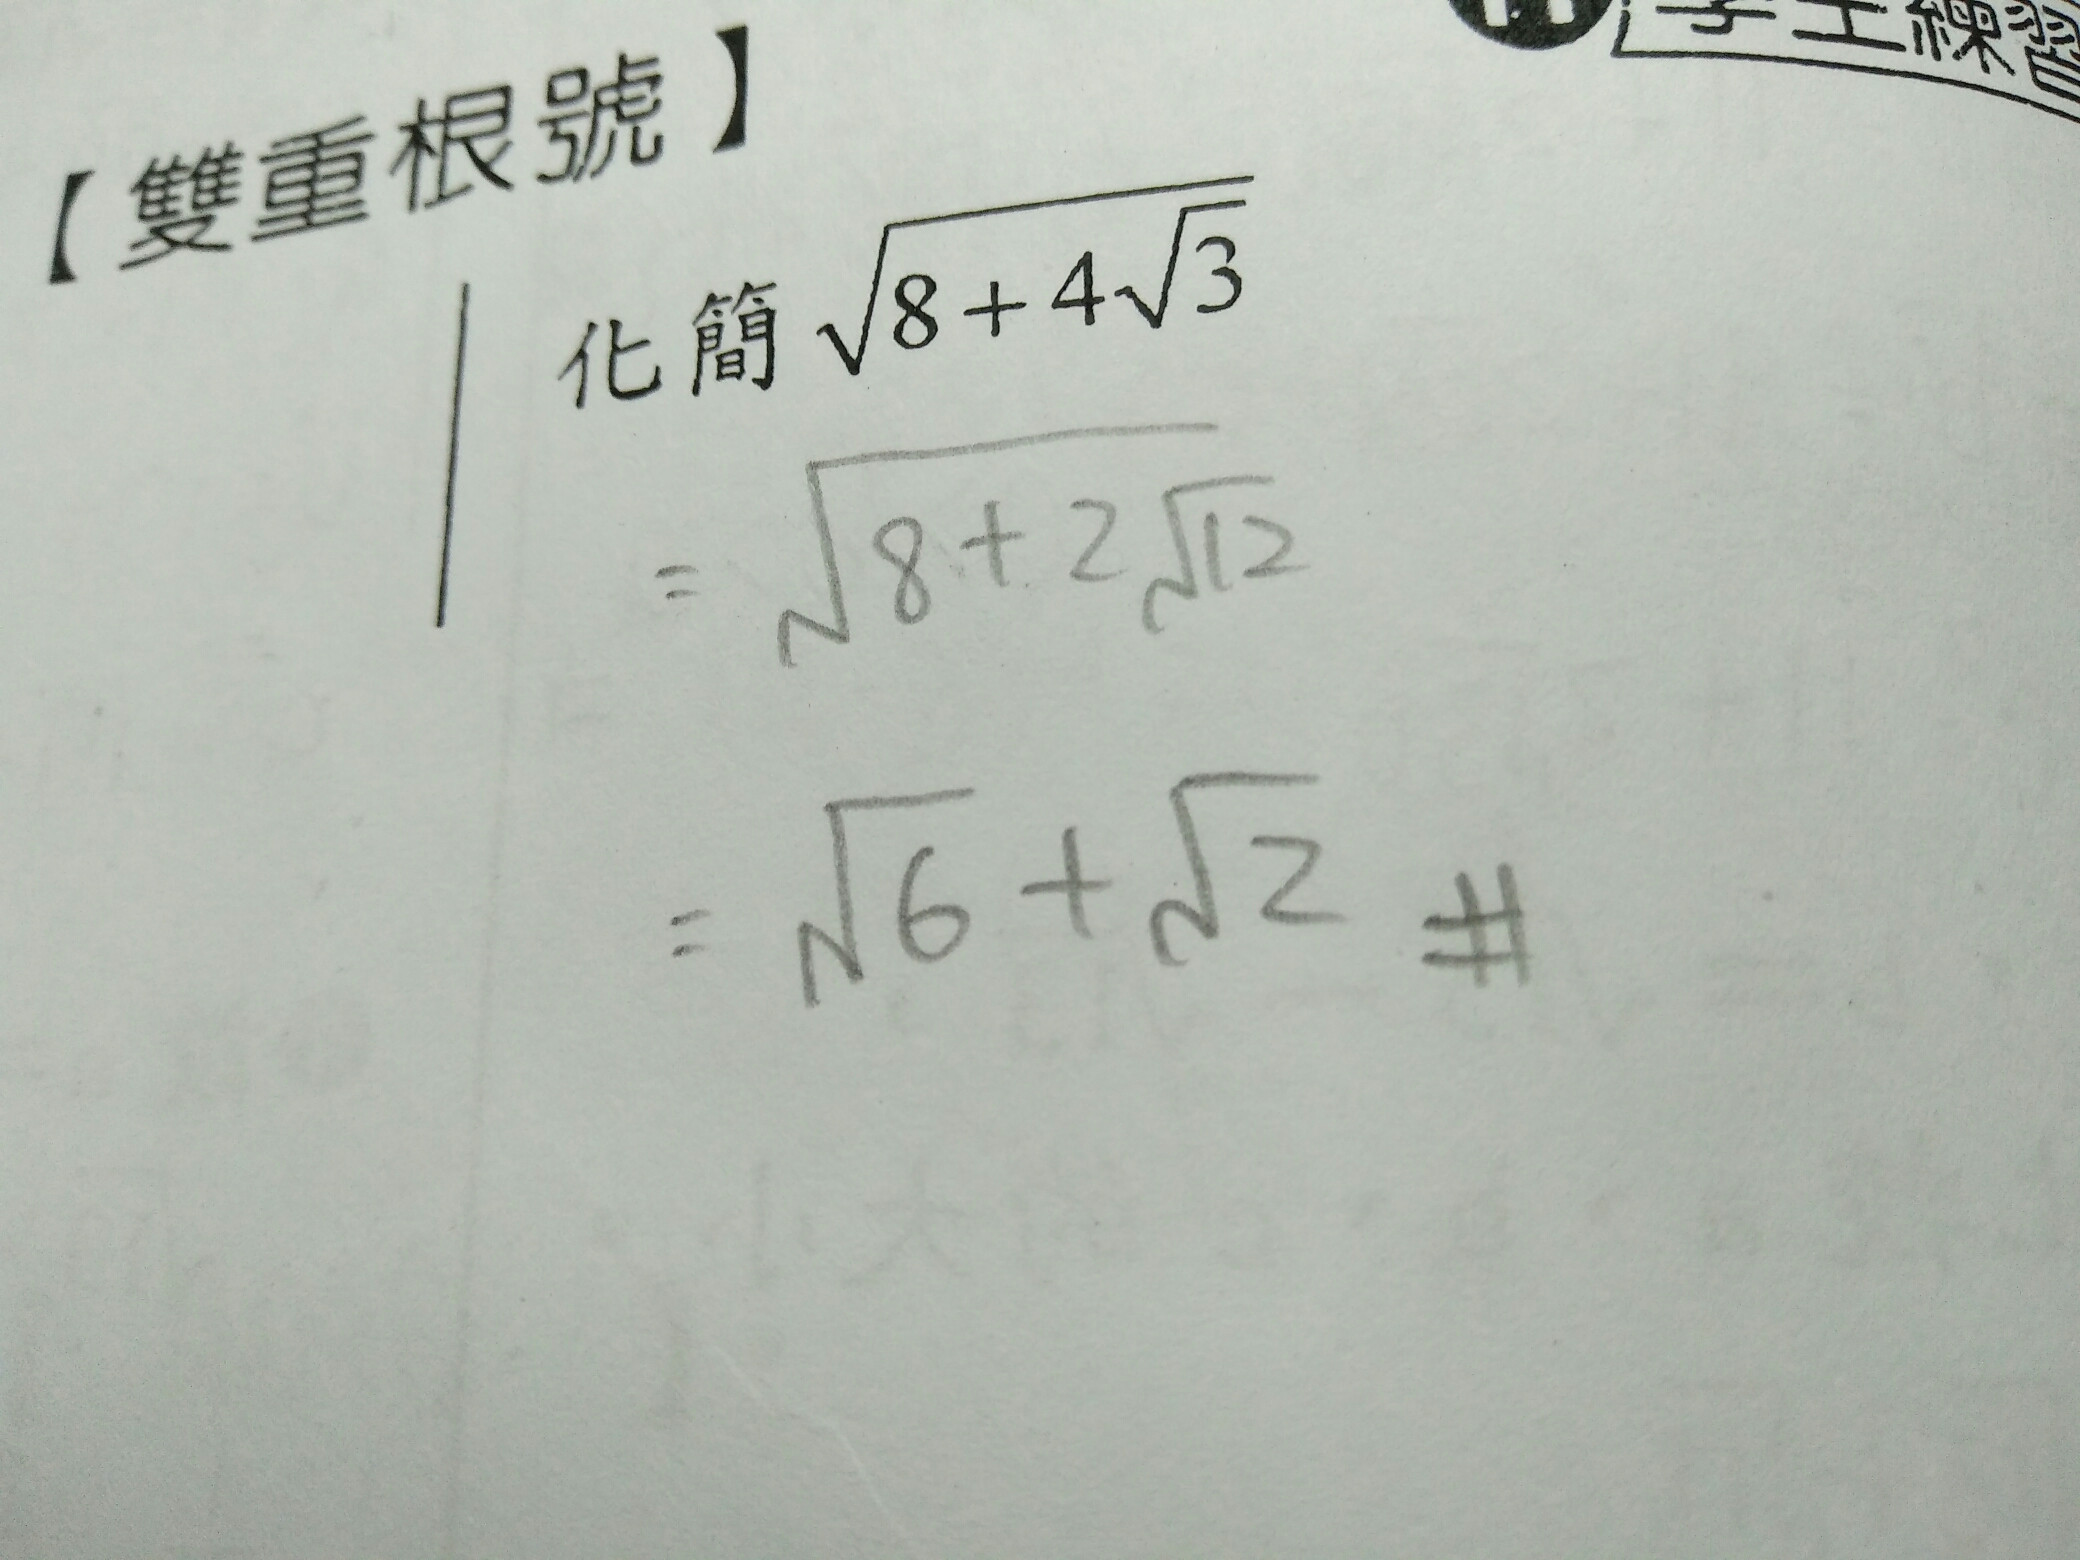 學生練習
【雙重根號】
化簡 √(8+4√3)
= √(8+2√12)
= √6 + √2 #